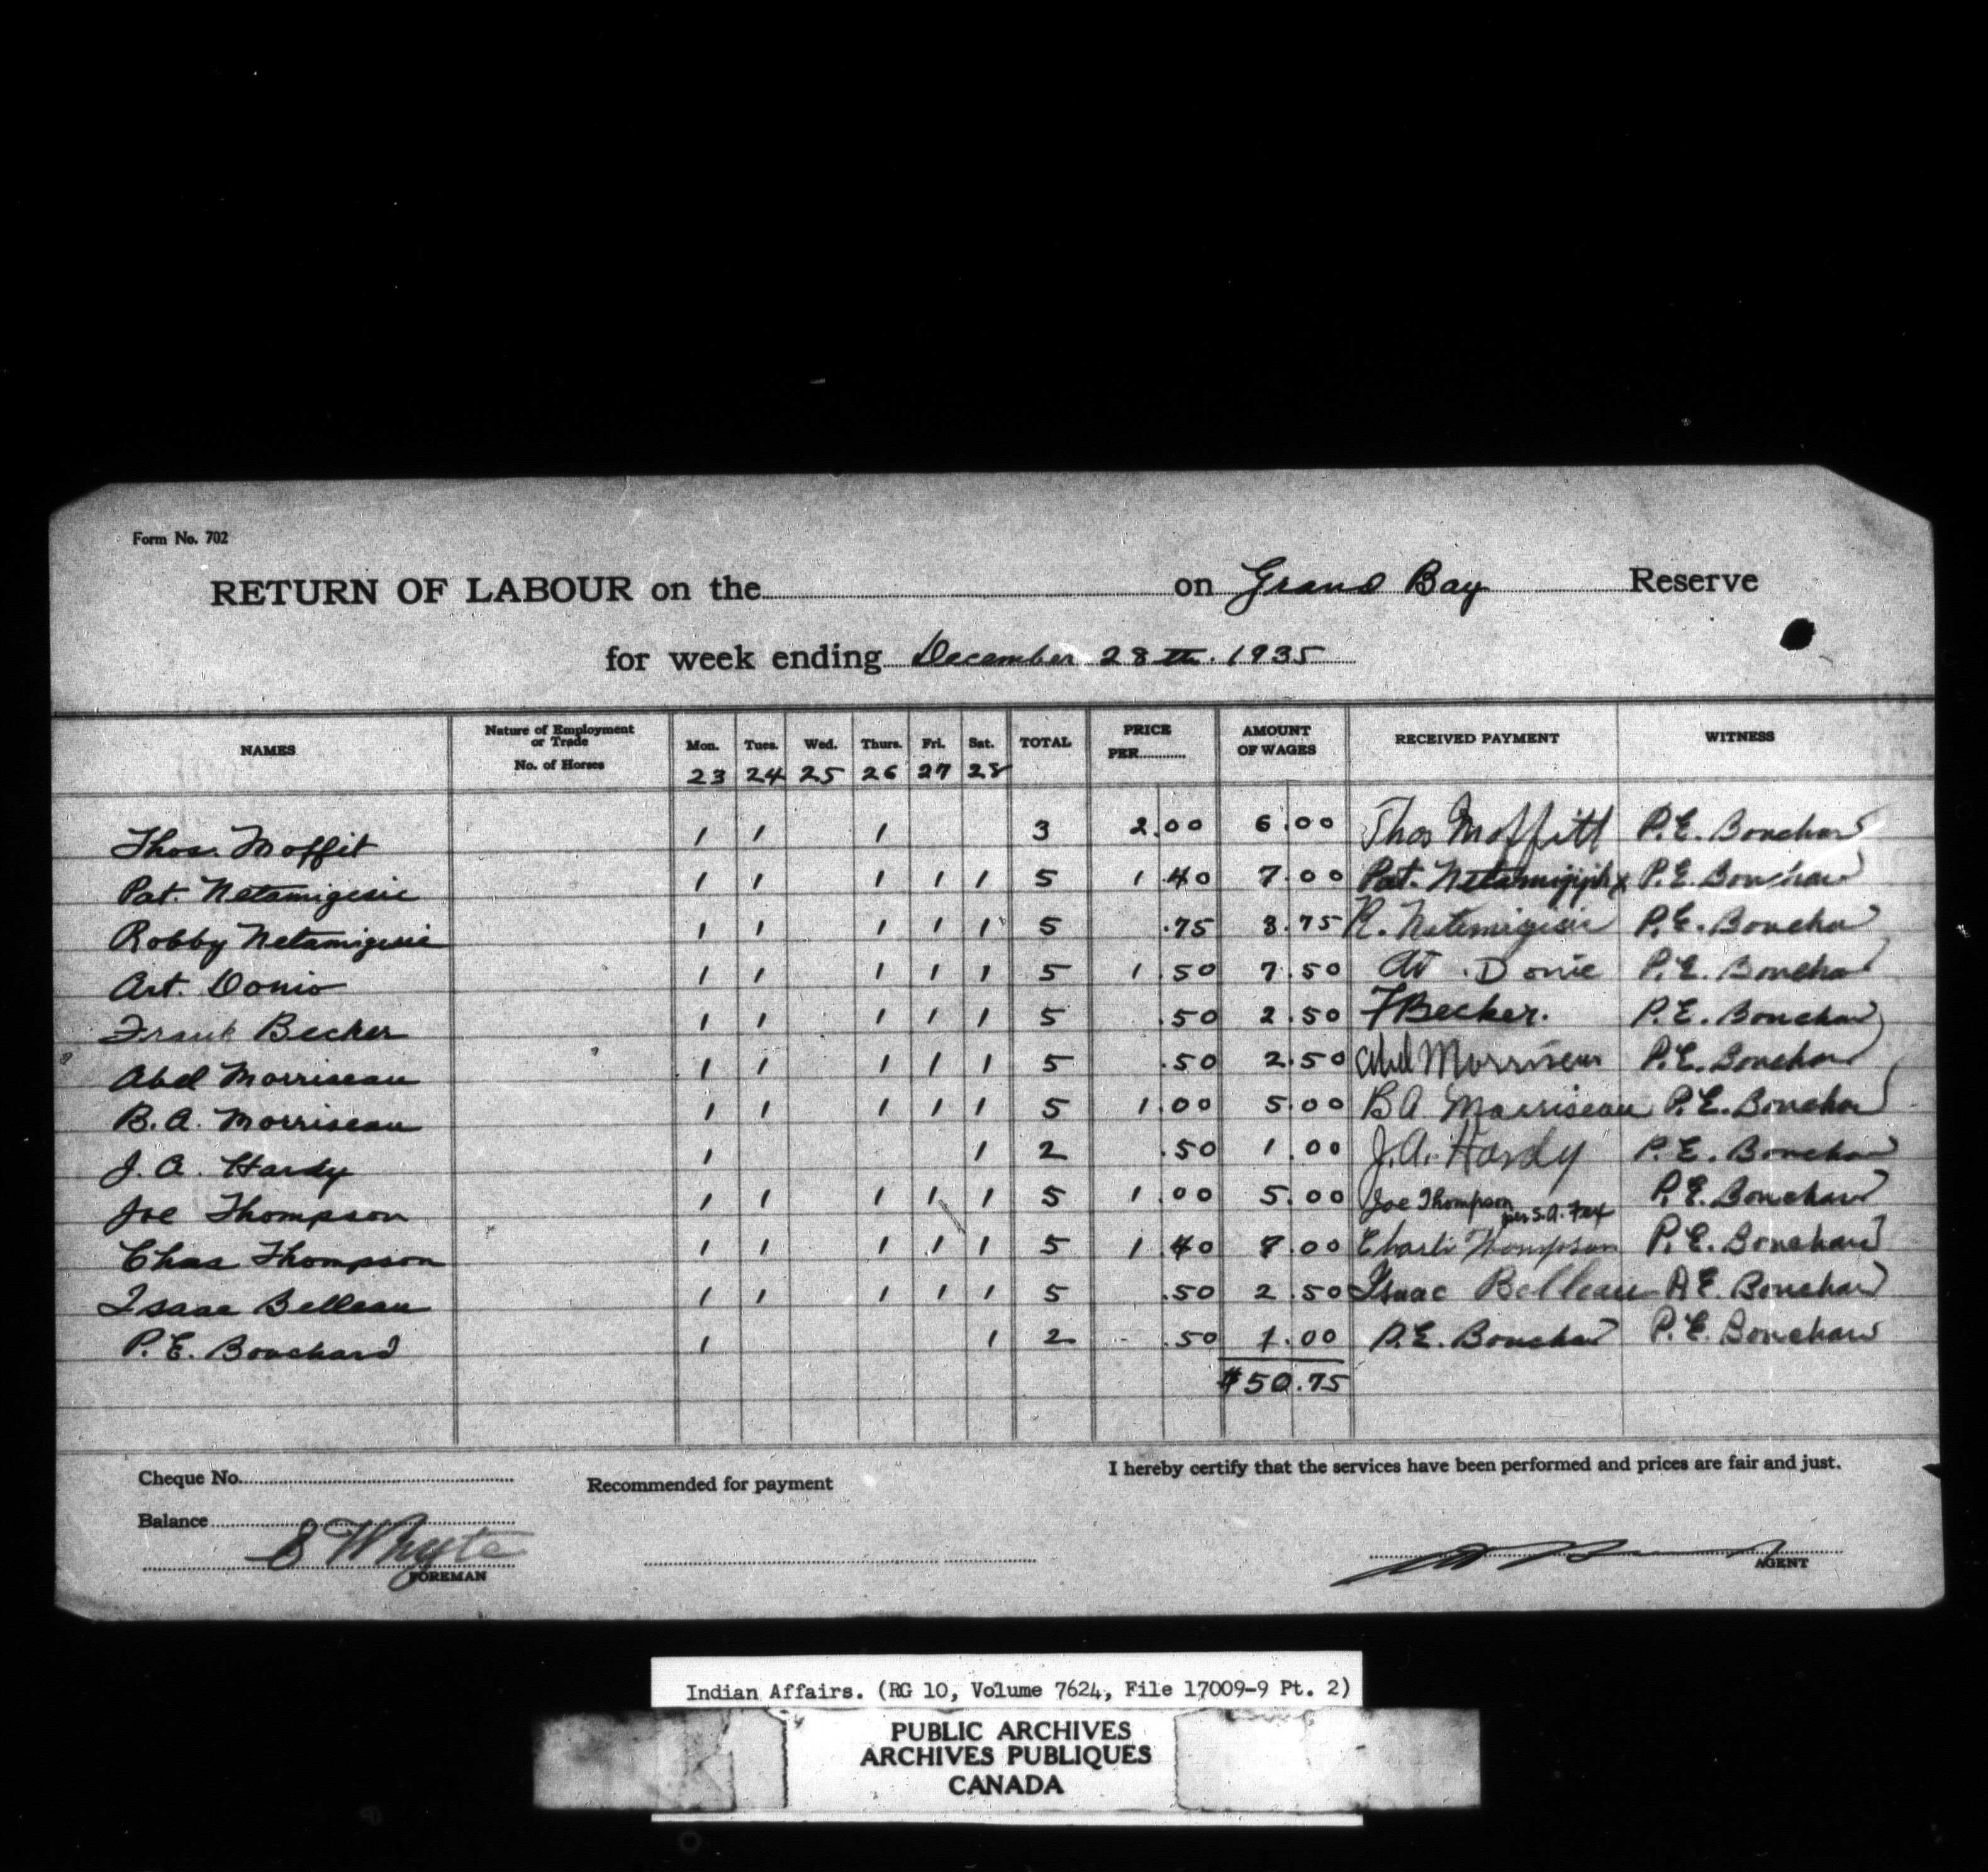 Form No. 702
RETURN OF LABOUR on the on Grand Bay Reserve
for week ending December 28th. 1935
NAMES Nature of Employment or Trade No. of Horses Mon. 23 Tues. 24 Wed. 25 Thurs. 26 Fri. 27 Sat. 28 TOTAL PRICE PER AMOUNT OF WAGES RECEIVED PAYMENT WITNESS
Thos. Moffit 1 1 1 3 2.00 6.00 Thos Moffitt P.E. Bouchard
Pat. Netamigesic 1 1 1 1 1 5 1.40 7.00 Pat. x P.E. Bouchard
Robby Netamigesic 1 1 1 1 1 5 .75 3.75 R. Netamigesic P.E. Bouchard
Art. Donio 1 1 1 1 1 5 1.50 7.50 Donie P.E. Bouchard
Frank Becker 1 1 1 1 1 5 .50 2.50 F Becker. P.E. Bouchard
Abel Morriseau 1 1 1 1 1 5 .50 2.50 Abel Morriseau P.E. Bouchard
B.A. Morriseau 1 1 1 1 1 5 1.00 5.00 B A Morriseau P.E. Bouchard
J.A. Hardy 1 1 2 .50 1.00 J.A. Hardy P.E. Bouchard
Joe Thompson 1 1 1 1 1 5 1.00 5.00 Joe Thompson per S.A. Fox P.E. Bouchard
Chas Thompson 1 1 1 1 1 5 1.40 7.00 Charli Thompson P.E. Bouchard
Isaac Belleau 1 1 1 1 1 5 .50 2.50 Isaac Belleau P.E. Bouchard
P.E. Bouchard 1 1 2 .50 1.00 P.E. Bouchard P.E. Bouchard
$50.75
Cheque No. Recommended for payment I hereby certify that the services have been performed and prices are fair and just.
Balance
S Whyte
FOREMAN AGENT
Indian Affairs. (RG 10, Volume 7624, File 17009-9 Pt. 2)
PUBLIC ARCHIVES
ARCHIVES PUBLIQUES
CANADA